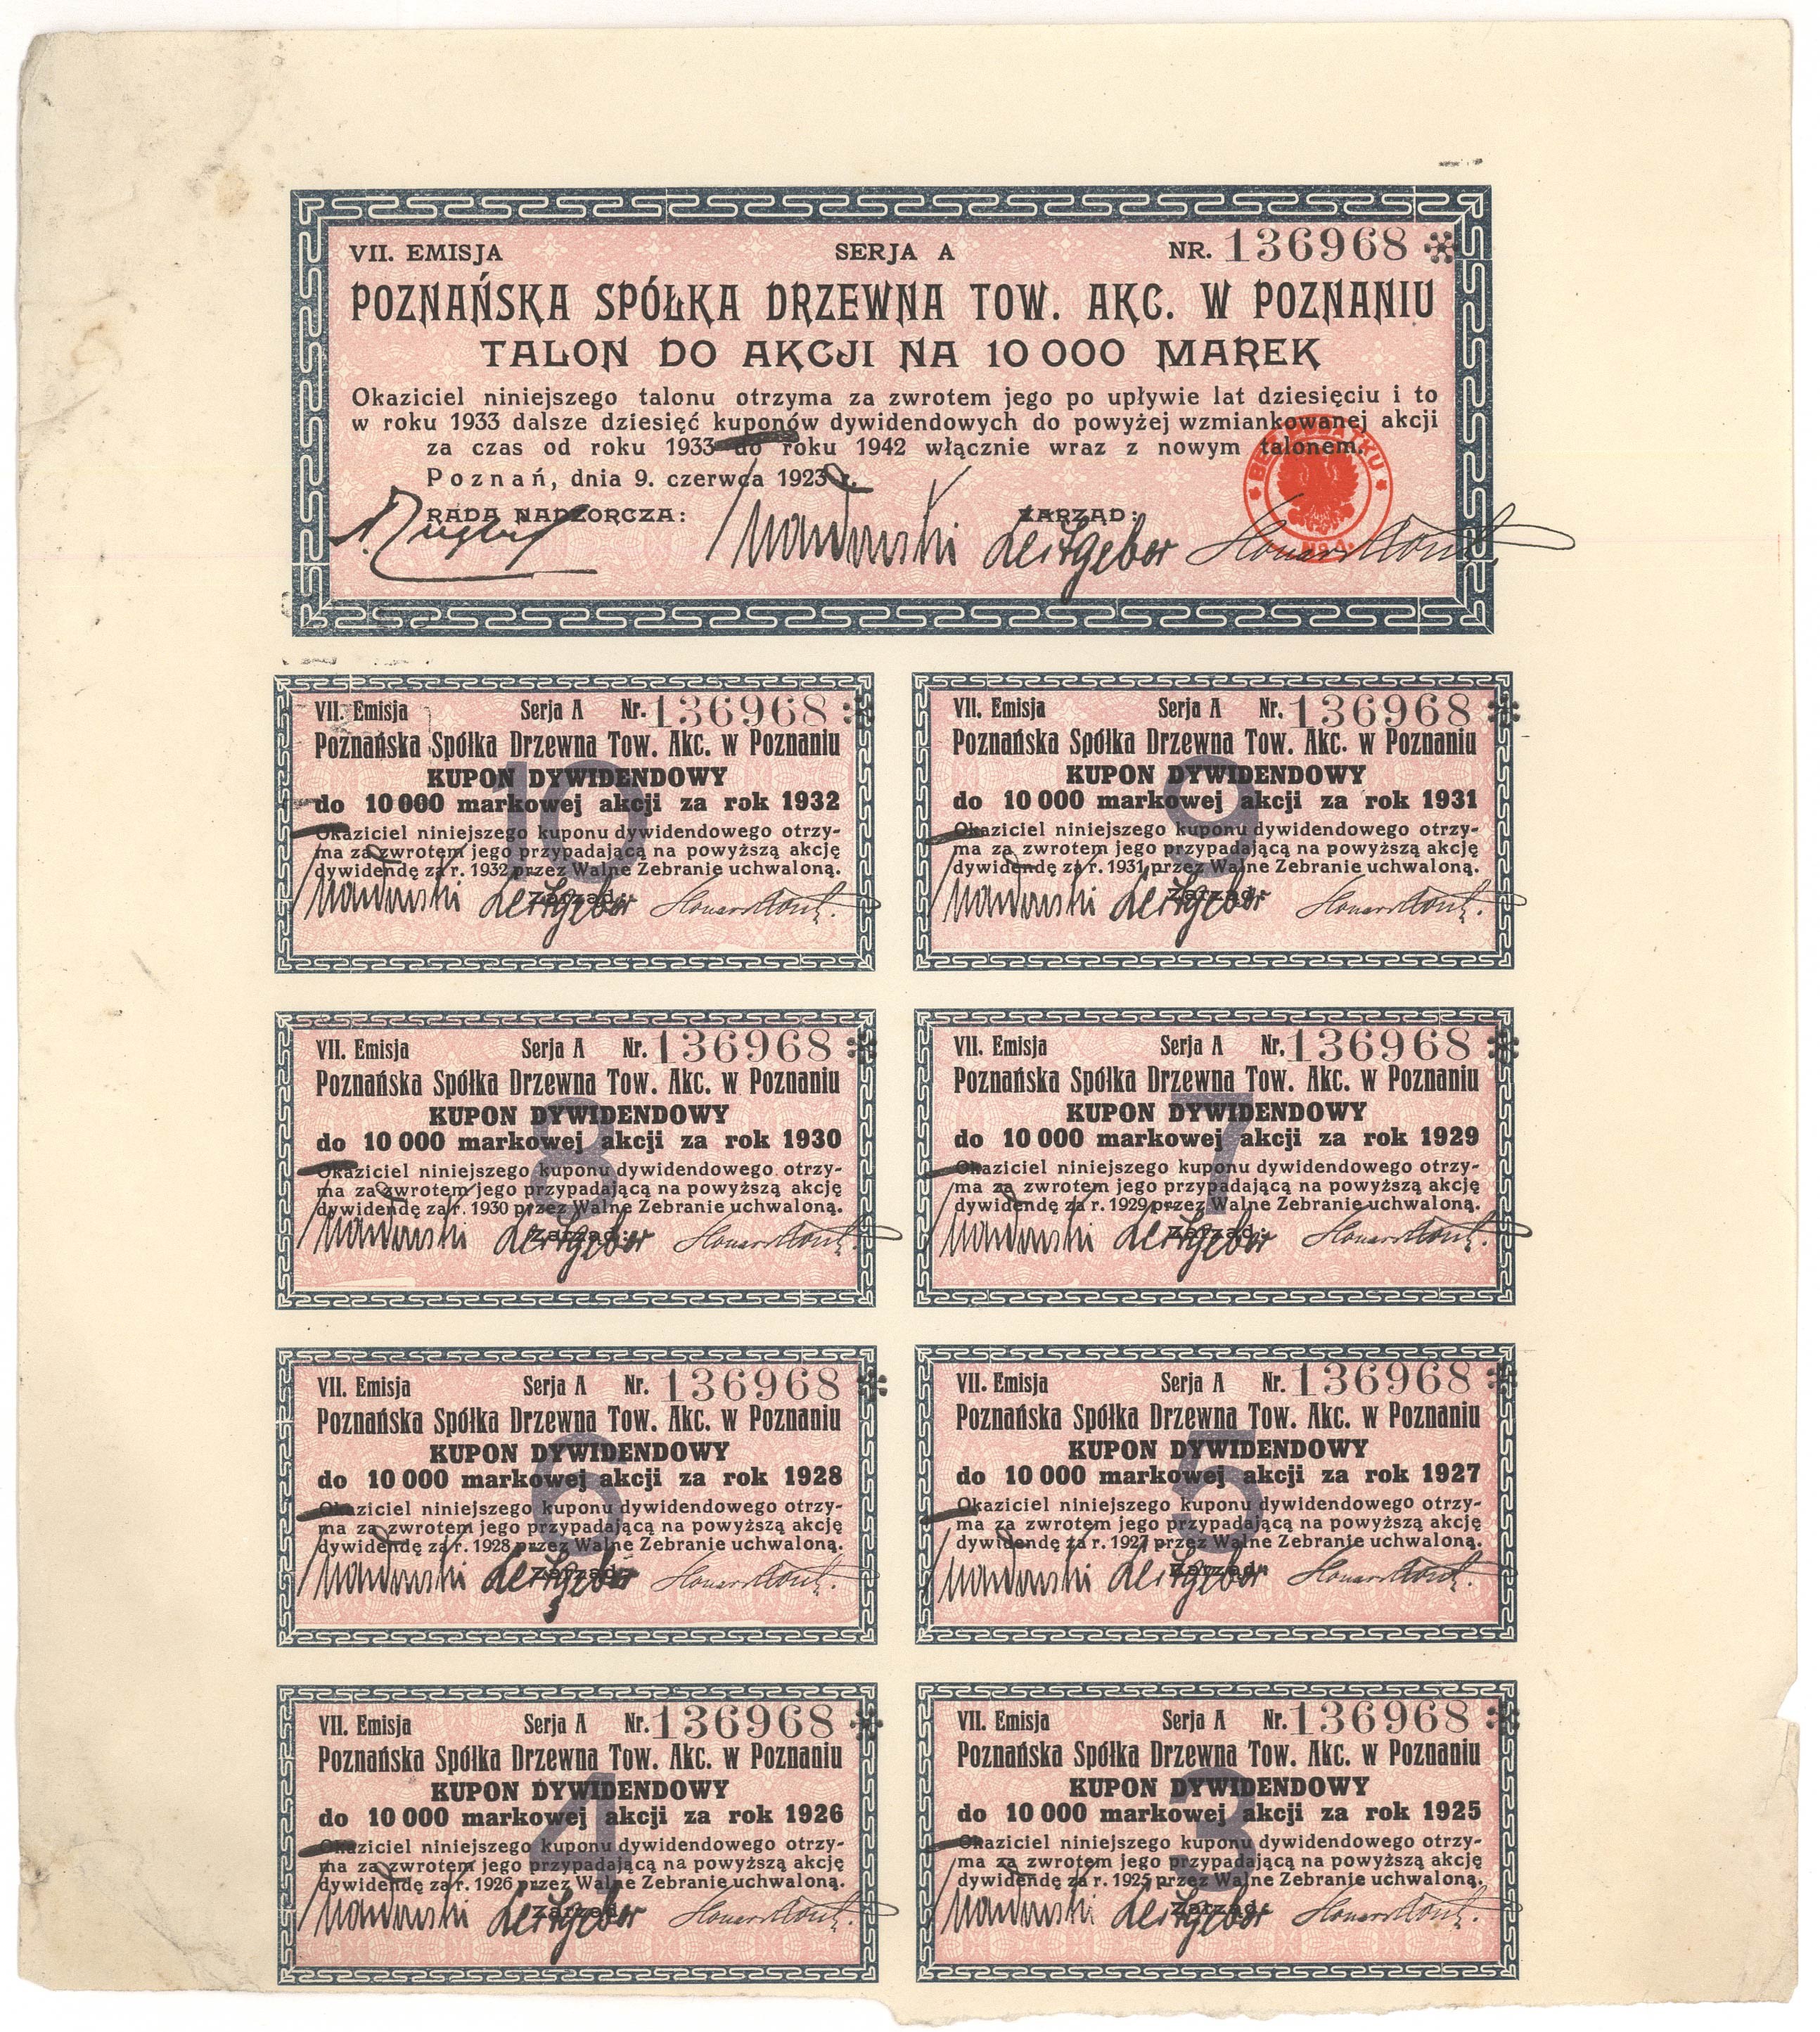 VII. EMISJA SERJA A NR. 136968
POZNAŃSKA SPÓŁKA DRZEWNA TOW. AKC. W POZNANIU
TALON DO AKCJI NA 10 000 MAREK
Okaziciel niniejszego talonu otrzyma za zwrotem jego po upływie lat dziesięciu i to
w roku 1933 dalsze dziesięć kuponów dywidendowych do powyżej wzmiankowanej akcji
za czas od roku 1933 do roku 1942 włącznie wraz z nowym talonem.
Poznań, dnia 9. czerwca 1923 r.
RADA NADZORCZA: ZARZĄD:
Leitgeber
BEZ PODATKU
No 4.
VII. Emisja Serja A Nr. 136968
Poznańska Spółka Drzewna Tow. Akc. w Poznaniu
KUPON DYWIDENDOWY
10
do 10 000 markowej akcji za rok 1932
Okaziciel niniejszego kuponu dywidendowego otrzy-
ma za zwrotem jego przypadającą na powyższą akcję
dywidendę za r. 1932 przez Walne Zebranie uchwaloną.
Zarząd:
Leitgeber
VII. Emisja Serja A Nr. 136968
Poznańska Spółka Drzewna Tow. Akc. w Poznaniu
KUPON DYWIDENDOWY
9
do 10 000 markowej akcji za rok 1931
Okaziciel niniejszego kuponu dywidendowego otrzy-
ma za zwrotem jego przypadającą na powyższą akcję
dywidendę za r. 1931 przez Walne Zebranie uchwaloną.
Zarząd:
Leitgeber
VII. Emisja Serja A Nr. 136968
Poznańska Spółka Drzewna Tow. Akc. w Poznaniu
KUPON DYWIDENDOWY
8
do 10 000 markowej akcji za rok 1930
Okaziciel niniejszego kuponu dywidendowego otrzy-
ma za zwrotem jego przypadającą na powyższą akcję
dywidendę za r. 1930 przez Walne Zebranie uchwaloną.
Zarząd:
Leitgeber
VII. Emisja Serja A Nr. 136968
Poznańska Spółka Drzewna Tow. Akc. w Poznaniu
KUPON DYWIDENDOWY
7
do 10 000 markowej akcji za rok 1929
Okaziciel niniejszego kuponu dywidendowego otrzy-
ma za zwrotem jego przypadającą na powyższą akcję
dywidendę za r. 1929 przez Walne Zebranie uchwaloną.
Zarząd:
Leitgeber
VII. Emisja Serja A Nr. 136968
Poznańska Spółka Drzewna Tow. Akc. w Poznaniu
KUPON DYWIDENDOWY
6
do 10 000 markowej akcji za rok 1928
Okaziciel niniejszego kuponu dywidendowego otrzy-
ma za zwrotem jego przypadającą na powyższą akcję
dywidendę za r. 1928 przez Walne Zebranie uchwaloną.
Zarząd:
Leitgeber
VII. Emisja Serja A Nr. 136968
Poznańska Spółka Drzewna Tow. Akc. w Poznaniu
KUPON DYWIDENDOWY
5
do 10 000 markowej akcji za rok 1927
Okaziciel niniejszego kuponu dywidendowego otrzy-
ma za zwrotem jego przypadającą na powyższą akcję
dywidendę za r. 1927 przez Walne Zebranie uchwaloną.
Zarząd:
Leitgeber
VII. Emisja Serja A Nr. 136968
Poznańska Spółka Drzewna Tow. Akc. w Poznaniu
KUPON DYWIDENDOWY
4
do 10 000 markowej akcji za rok 1926
Okaziciel niniejszego kuponu dywidendowego otrzy-
ma za zwrotem jego przypadającą na powyższą akcję
dywidendę za r. 1926 przez Walne Zebranie uchwaloną.
Zarząd:
Leitgeber
VII. Emisja Serja A Nr. 136968
Poznańska Spółka Drzewna Tow. Akc. w Poznaniu
KUPON DYWIDENDOWY
3
do 10 000 markowej akcji za rok 1925
Okaziciel niniejszego kuponu dywidendowego otrzy-
ma za zwrotem jego przypadającą na powyższą akcję
dywidendę za r. 1925 przez Walne Zebranie uchwaloną.
Zarząd:
Leitgeber